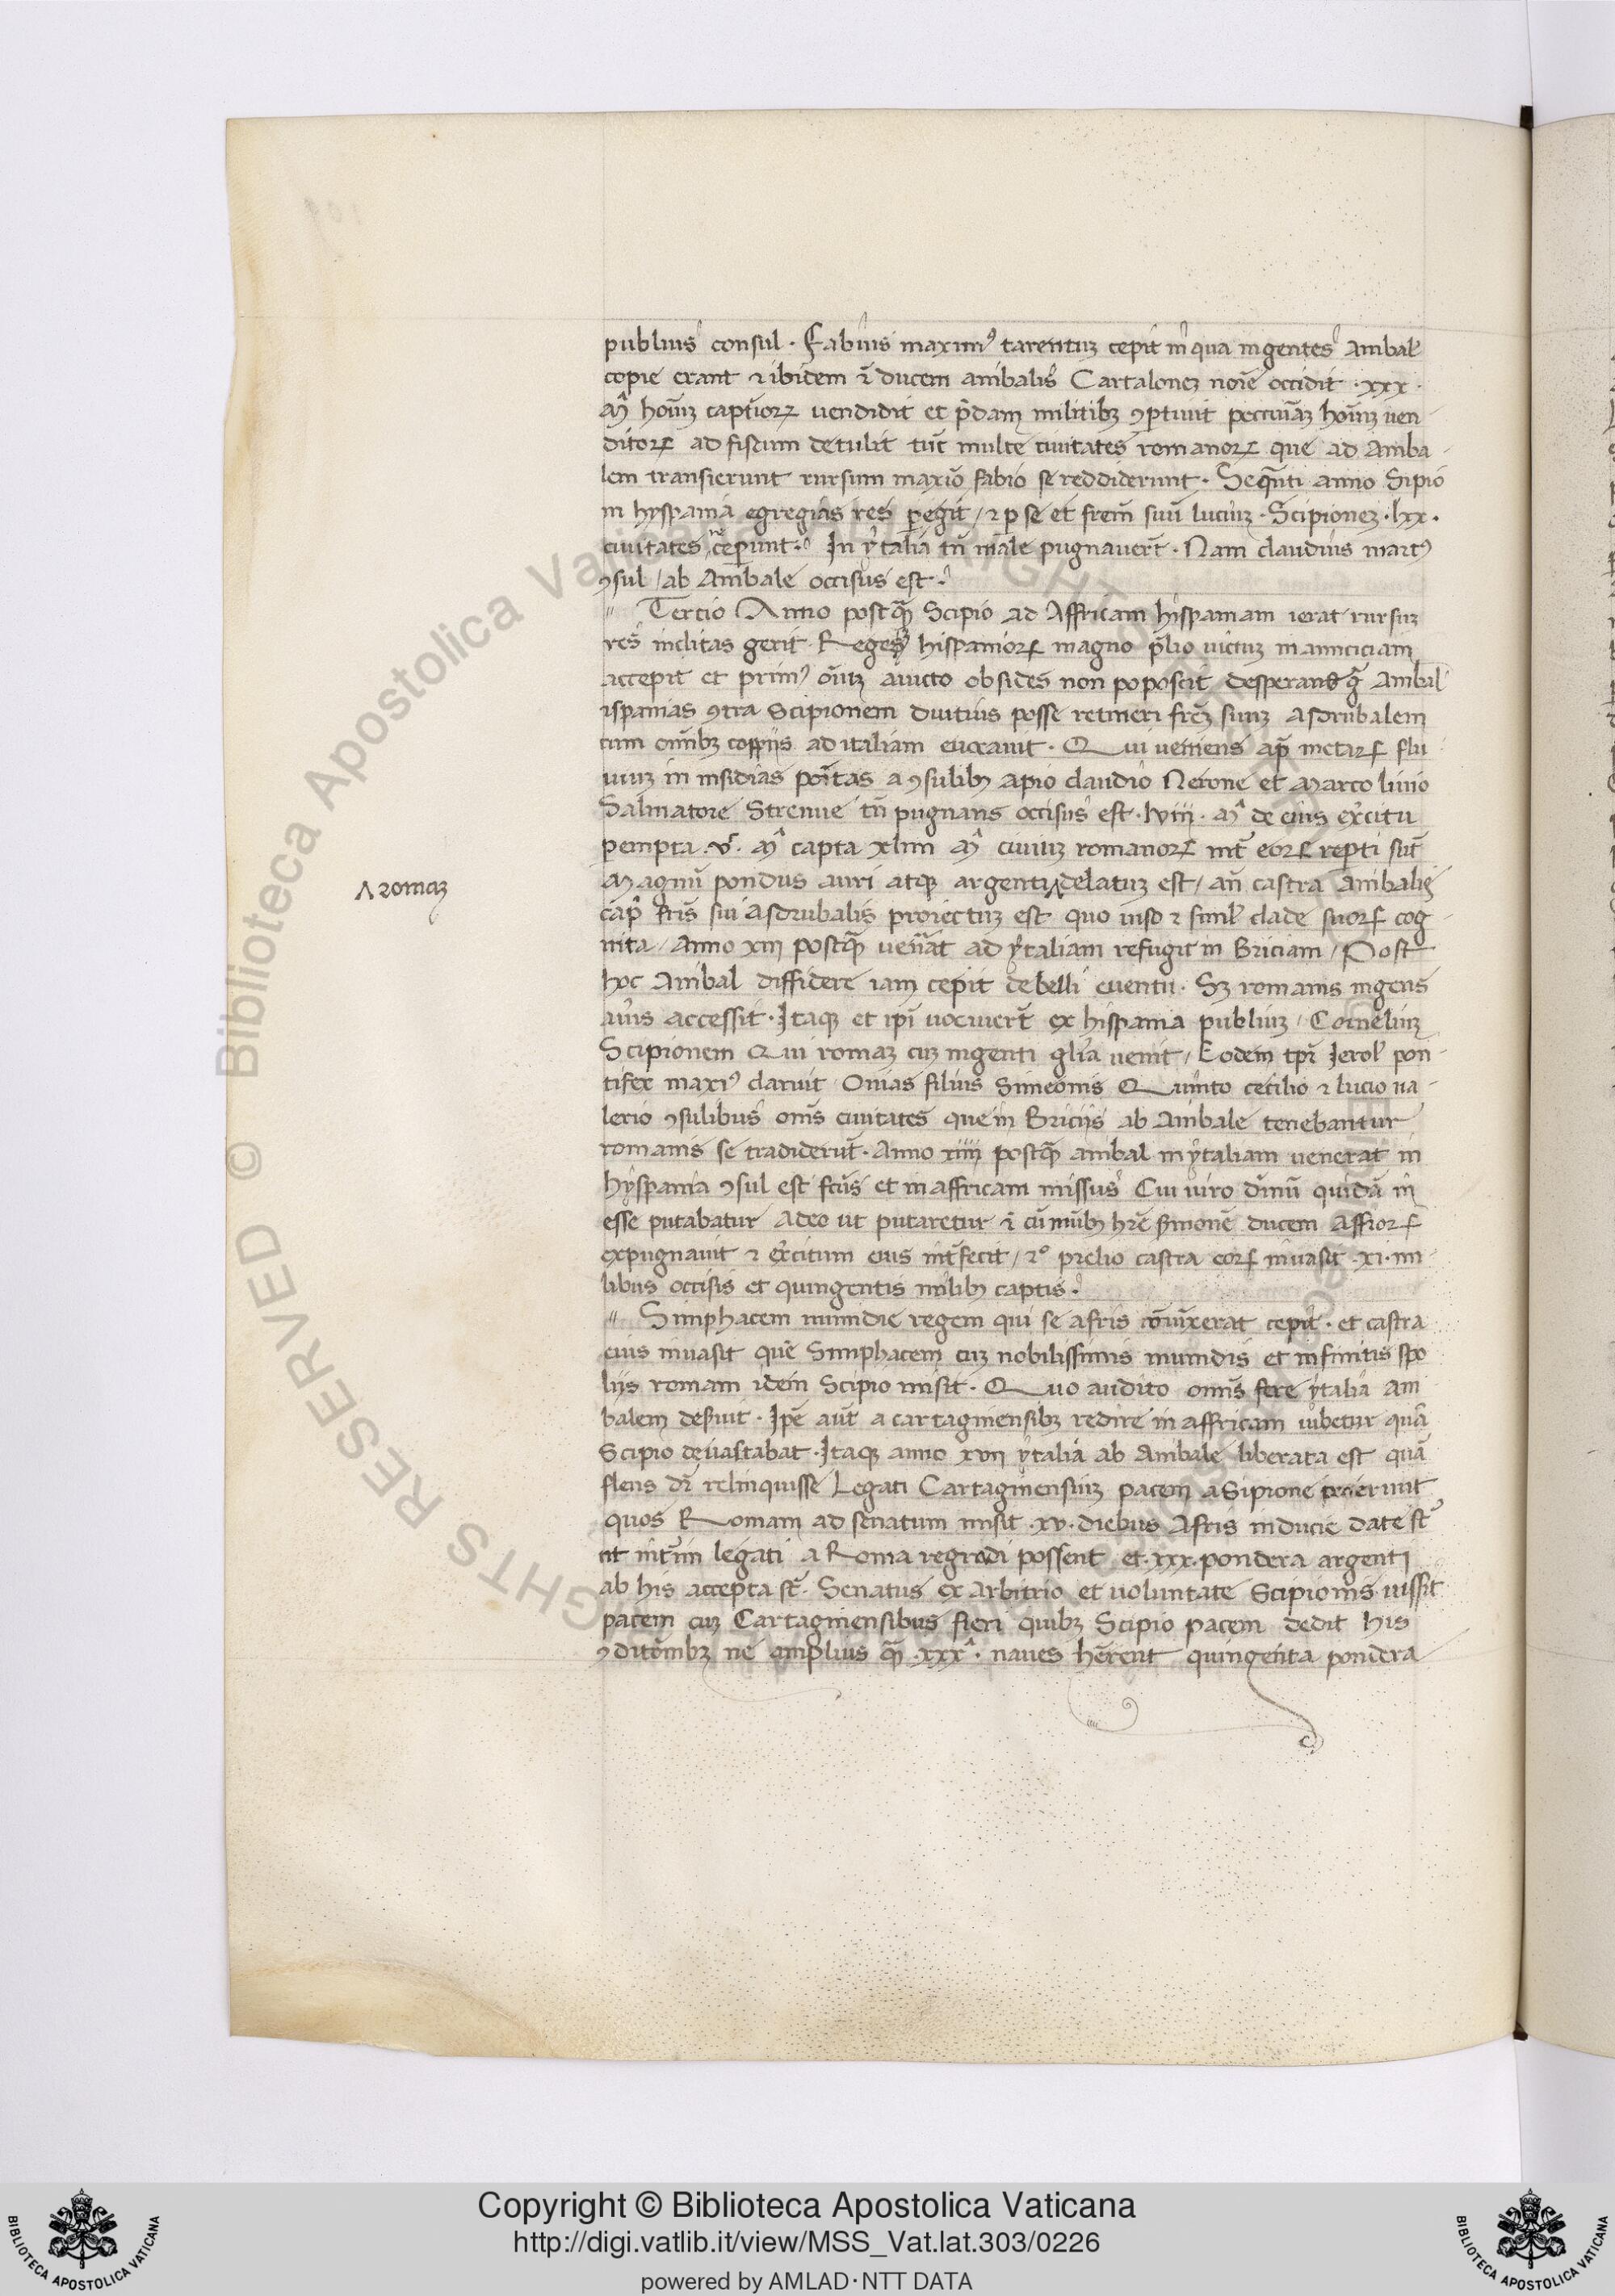 publius consul · Fabius maximꝰ tarentuꝫ cepit in qua ingentes Anibał
copie erant ⁊ ibidem ⁊̄ ducem anibalis Cartaloneꝫ noīe occidit · xxx ·
m̂ hoīuꝫ captiuoꝝ vendidit et p̄dam militibꝫ ꝯptiuit peccuiāꝫ hoīuꝫ ven
ditoꝝ ad fiscum detulit tūc multe ciuitates romanoꝝ que ad Aniba-
lem transierunt rursum maxīo fabio se reddiderunt · Seqn̄ti anno Sipio
in hyspania egregias res ꝑegit / ⁊ ꝑ se et frēm suū luciuꝫ · Scipioneꝫ · lxx ·
ciuitates ceperunt · In ytalia tn̄ male pugnauerūt · Nam claudius martꝰ
ꝯsul / ab Anibale occisus est ·
" Tertio Anno postꝙ̄ Scipio ad Affricam hispaniam ierat rursuꝫ
res inclitas gerit · Regeꝫ hispanioꝝ magno p̄lio uictuꝫ in amiciciam
accepit et primꝰ oīuꝫ auicto obsides non poposcit desperans ꝙ̄ Anibal
ispanias ꝯtra Scipionem diutius posse retineri frēꝫ suuꝫ Asdrubalem
cum omībꝫ copijs ad italiam euocauit · Qui veniens ap̄ metaꝝ flu
uiuꝫ in insidias poītas a ꝯsulibꝫ apio claudio Nerone et Marco liuio
Salinatore Strenue tn̄ pugnans occisus est · lviii · m̂ de eius exercitu
pempta · v̄ · m̂ capta xliiii m̂ ciuiuꝫ romanoꝝ int̄ eoꝝ reperti sūt
Magnū pondus auri atqꝫ argenti ʌ delatuꝫ est / an̄ castra Anibalis
ʌ romaꝫ
cap̄ fr̄is sui Asdrubalis proiectuꝫ est quo uiso ⁊ simił clade suoꝝ cog
nita / Anno xiii postꝙ̄ venerat ad ytaliam refugit in Briciam / Post
hoc Anibal diffidere iam cepit de belli euentu · Sꝫ romanis ingens
aīus accessit · Itaqꝫ et ip̄i uocauerūt ex hispania publiuꝫ / Corneliuꝫ
Scipionem Qui romaꝫ cuꝫ ingenti gl̄ia venit / Eodem tp̄r Ierol̄ pon-
tifex maxīꝰ claruit Onias filius Simeonis Quinto cecilio ⁊ lucio ua-
lerio ꝯsulibus om̄s ciuitates que in Bricijs ab Anibale tenebantur
romanis se tradiderūt · Anno xiiii postꝙ̄ anibal in ytaliam venerat in
hyspania ꝯsul est fc̄us et in affricam missus Cui uiro diuinū quidā in
esse putabatur Adeo ut putaretur ⁊̄ cū nūībꝫ hr̄e ẜmonē ducem Affroꝝ
expugnauit ⁊ exercitum eius int̄fecit / 2º prelio castra eoꝝ inuasit · xi · mi-
libus occisis et quingentis milibꝫ captis ·
" Simphacem numidie regem qui se afris cōiūxerat cepit · et castra
eius inuasit que Simphacem cuꝫ nobilissimis numidis et infinitis spo
lijs romam idem Scipio misit · Quo audito om̄s fere ytalia Ani
balem deẜiuit · Ip̄e aūt a cartaginensibꝫ redire in affricam iubetur quā
Scipio deuastabat · Itaqꝫ anno xvii ytalia ab Anibale liberata est quā
flens dr̄ relinquisse Legati Cartaginensiuꝫ pacem a Sipione petierunt
quos Romam ad senatum misit · xv · diebus Afris inducie date sūt
ut int̄im legati a Roma regredi possent et · xxx · pondera argenti
ab his accepta sūt · Senatus ex arbitrio et uoluntate Scipionis iussit
pacem cuꝫ Cartaginensibus fieri quibꝫ Scipio pacem dedit His
ꝯditōnibꝫ ne amplius ꝙ̄ · xxx · naues hērent quingenta pondera
Copyright © Biblioteca Apostolica Vaticana
http://digi.vatlib.it/view/MSS_Vat.lat.303/0226
powered by AMLAD·NTT DATA